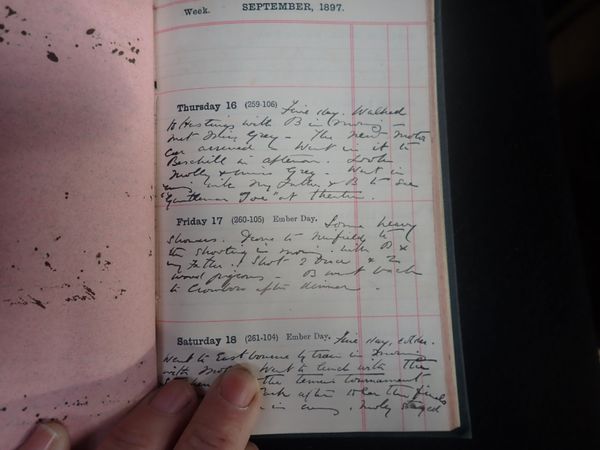 Week. SEPTEMBER, 1897.
Thursday 16 (259-106) Fine day. Walked
to Hastings with B in morning -
met Miss Grey - The new motor
car arrived - Went in it to
Bexhill in afternoon. Took
Molly & Miss Grey - Went in
with my Father & B to see
"Gentleman Joe" at theatre.
Friday 17 (260-105) Ember Day. Some heavy
showers. Drove to Ninfield to
the shooting in morning with B &
my Father. I shot 2 & 2
wood pigeons - B went back
to Crowboro after dinner -
Saturday 18 (261-104) Ember Day. Fine day,
Went to Eastbourne by train in morning
with Went to lunch with The
the tennis tournament
after to see the finals
in Molly stayed